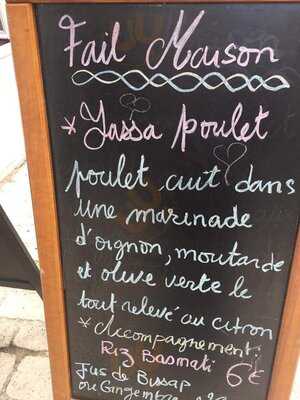 Fait Maison
*Yassa poulet
poulet, cuit dans
une marinade
d'oignon, moutarde
et olive verte le
tout relevé au citron
*Accompagnement:
Riz Basmati 6€
Jus de Bissap
ou Gingembre